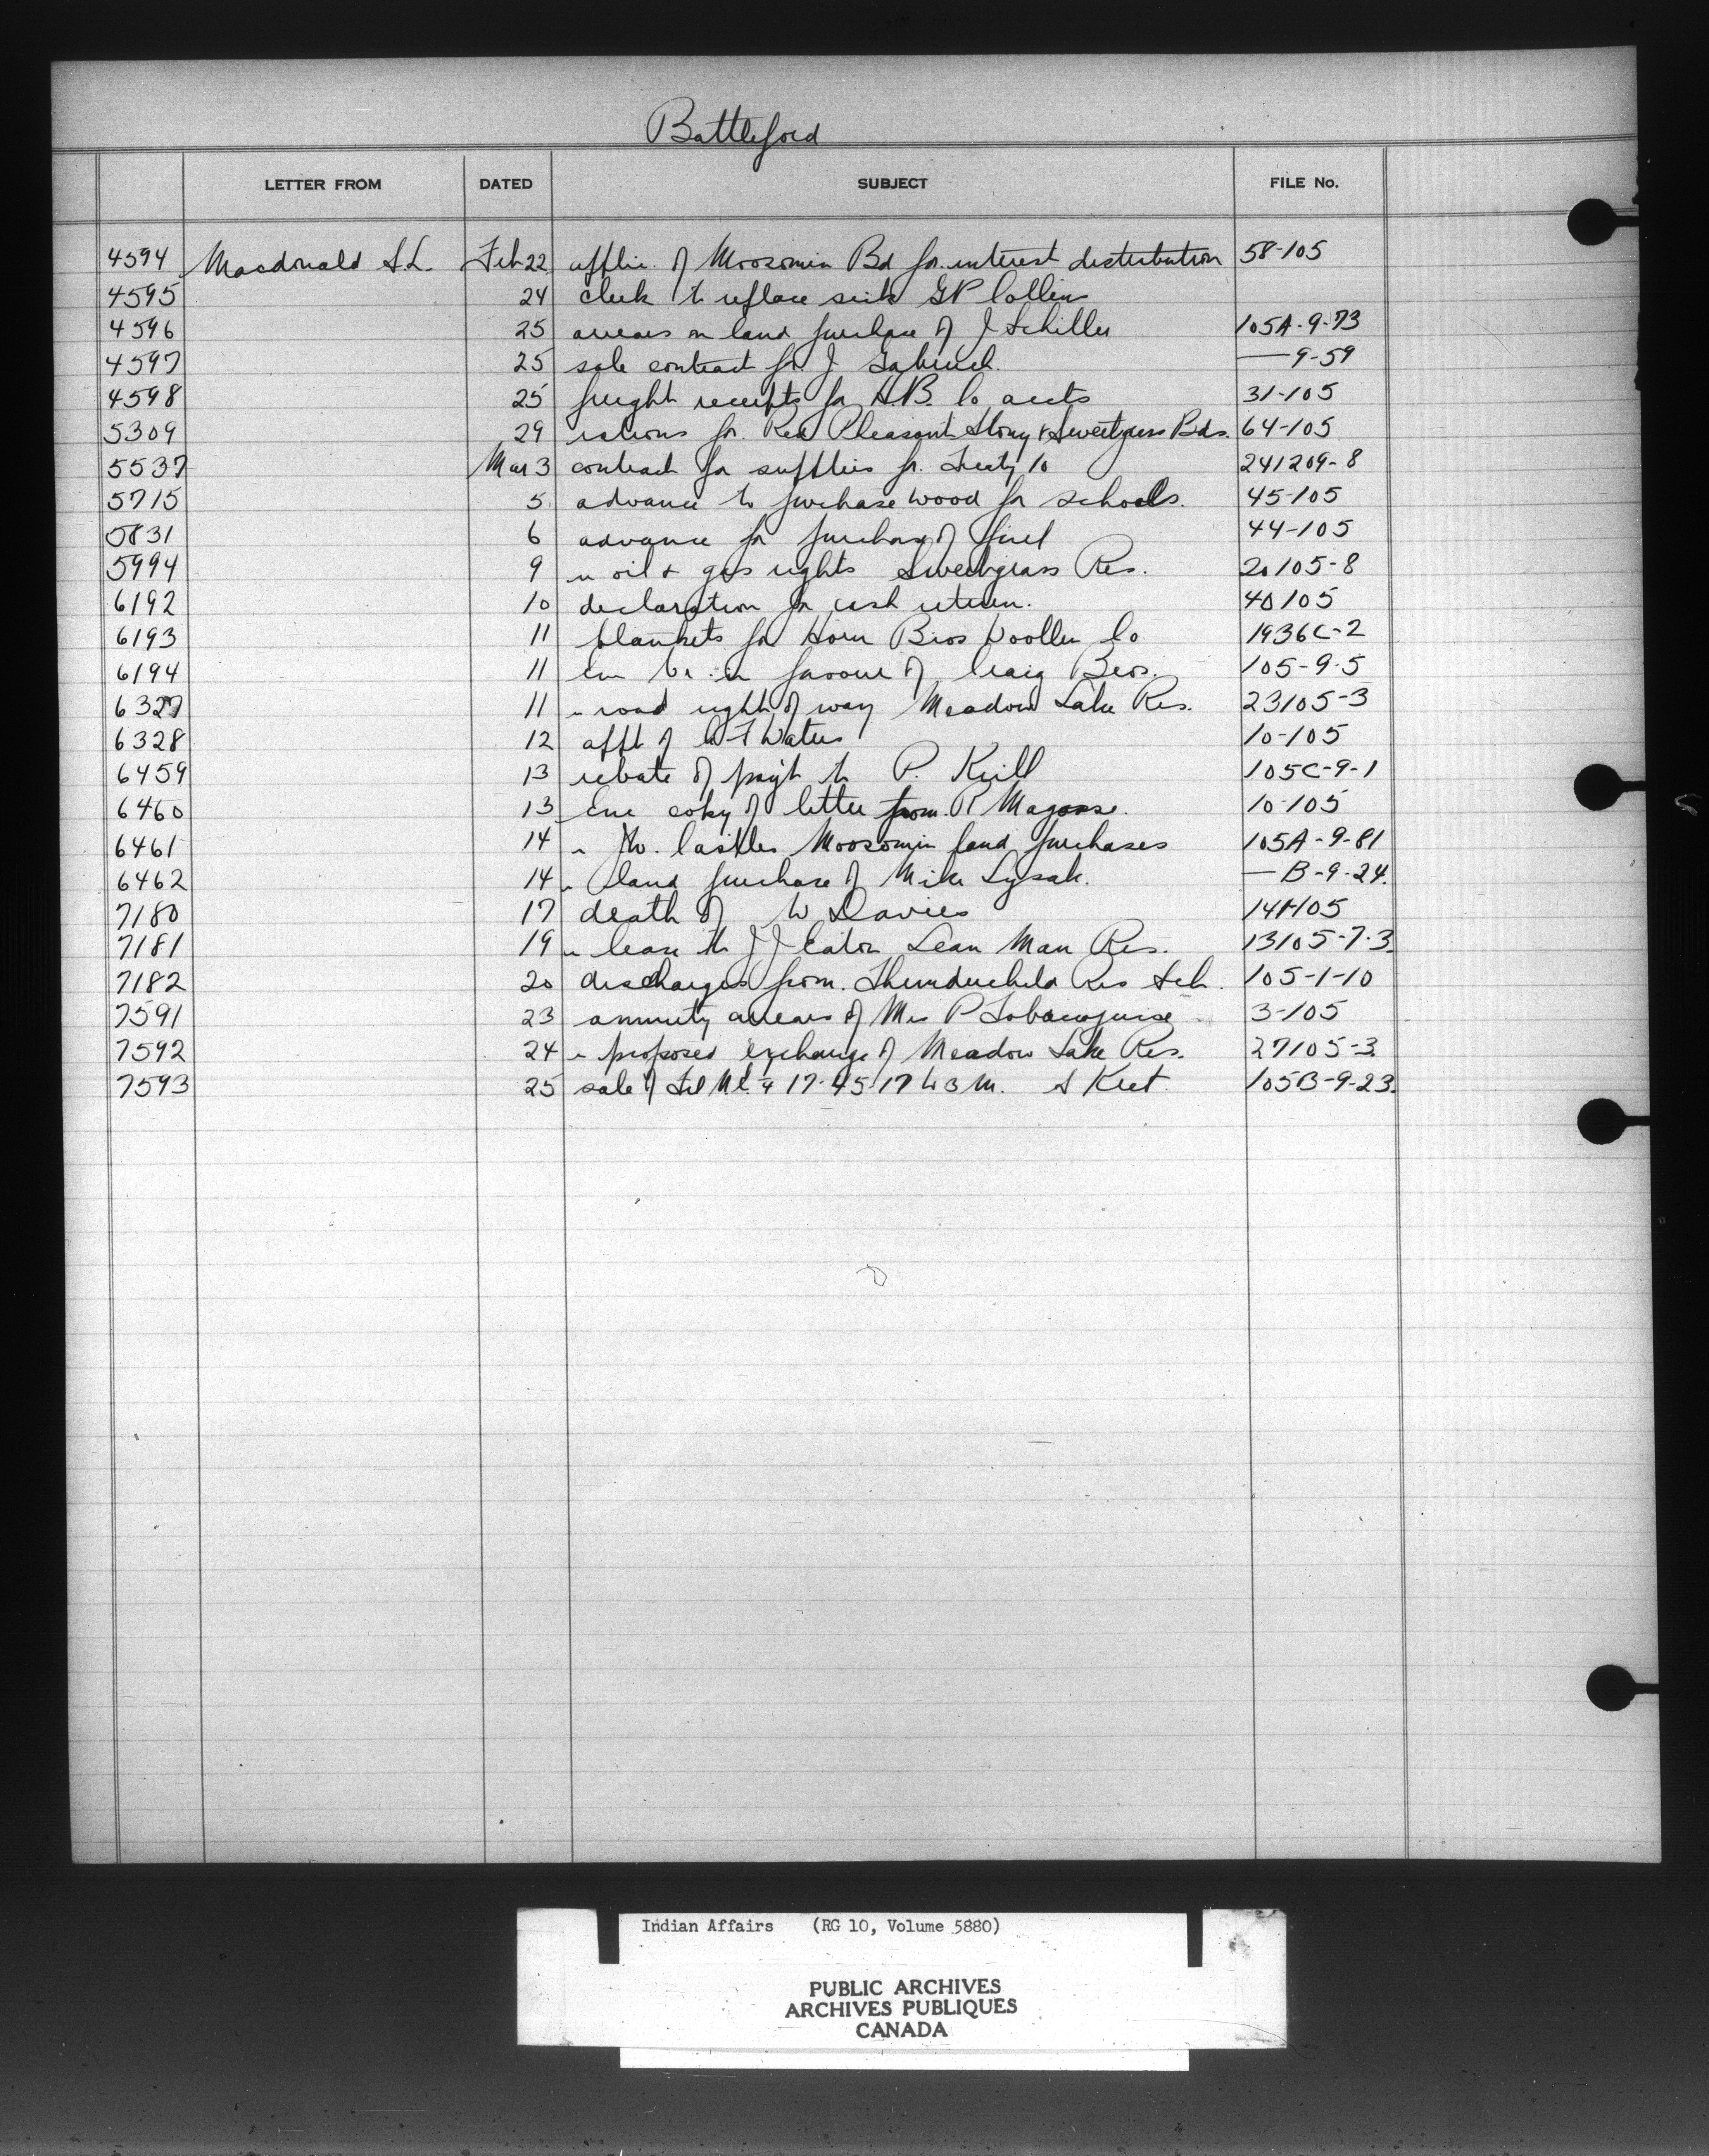 Battleford
LETTER FROM DATED SUBJECT FILE No.
4594 Macdonald S.L. Feb 22 applic. of Moosomin Bd for interest distribution 58-105
4595 24 check to replace G P Collins
4596 25 arrears on land purchase of J Schiller 105A-9-73
4597 25 sale contract for J. — 9-59
4598 25 freight receipts for H.B. Co accts 31-105
5309 29 rations for Red Pheasant Stony & Sweetgrass Bds. 64-105
5537 Mar 3 contract for supplies for Treaty 10 241209-8
5715 5 advance to purchase wood for schools. 45-105
5831 6 advance for purchase of fuel 44-105
5994 9 " oil & gas rights Sweetgrass Res. 20105-8
6192 10 declaration for cash return. 40105
6193 11 blankets for Horn Bros Woollen Co 1936C-2
6194 11 in favour of Craig Bros. 105-9-5
6327 11 " road right of way Meadow Lake Res. 23105-3
6328 12 appt of Waters 10-105
6459 13 rebate of pay't to P. Krill 105C-9-1
6460 13 Enc copy of letter from R Magoose. 10-105
6461 14 " Castles Moosomin land purchases 105A-9-81
6462 14 " land purchase of Mike Lysak. — B-9-24.
7180 17 death of W Davies 141-105
7181 19 " lease to J J Eaton Lean Man Res. 13105-7-3
7182 20 discharges from Thunderchild Res Sch. 105-1-10
7591 23 annuity arrears of Mrs P 3-105
7592 24 " proposed exchange of Meadow Lake Res. 27105-3
7593 25 sale of 17-45-17 W3M. S Kret 105B-9-23.
Indian Affairs (RG 10, Volume 5880)
PUBLIC ARCHIVES
ARCHIVES PUBLIQUES
CANADA